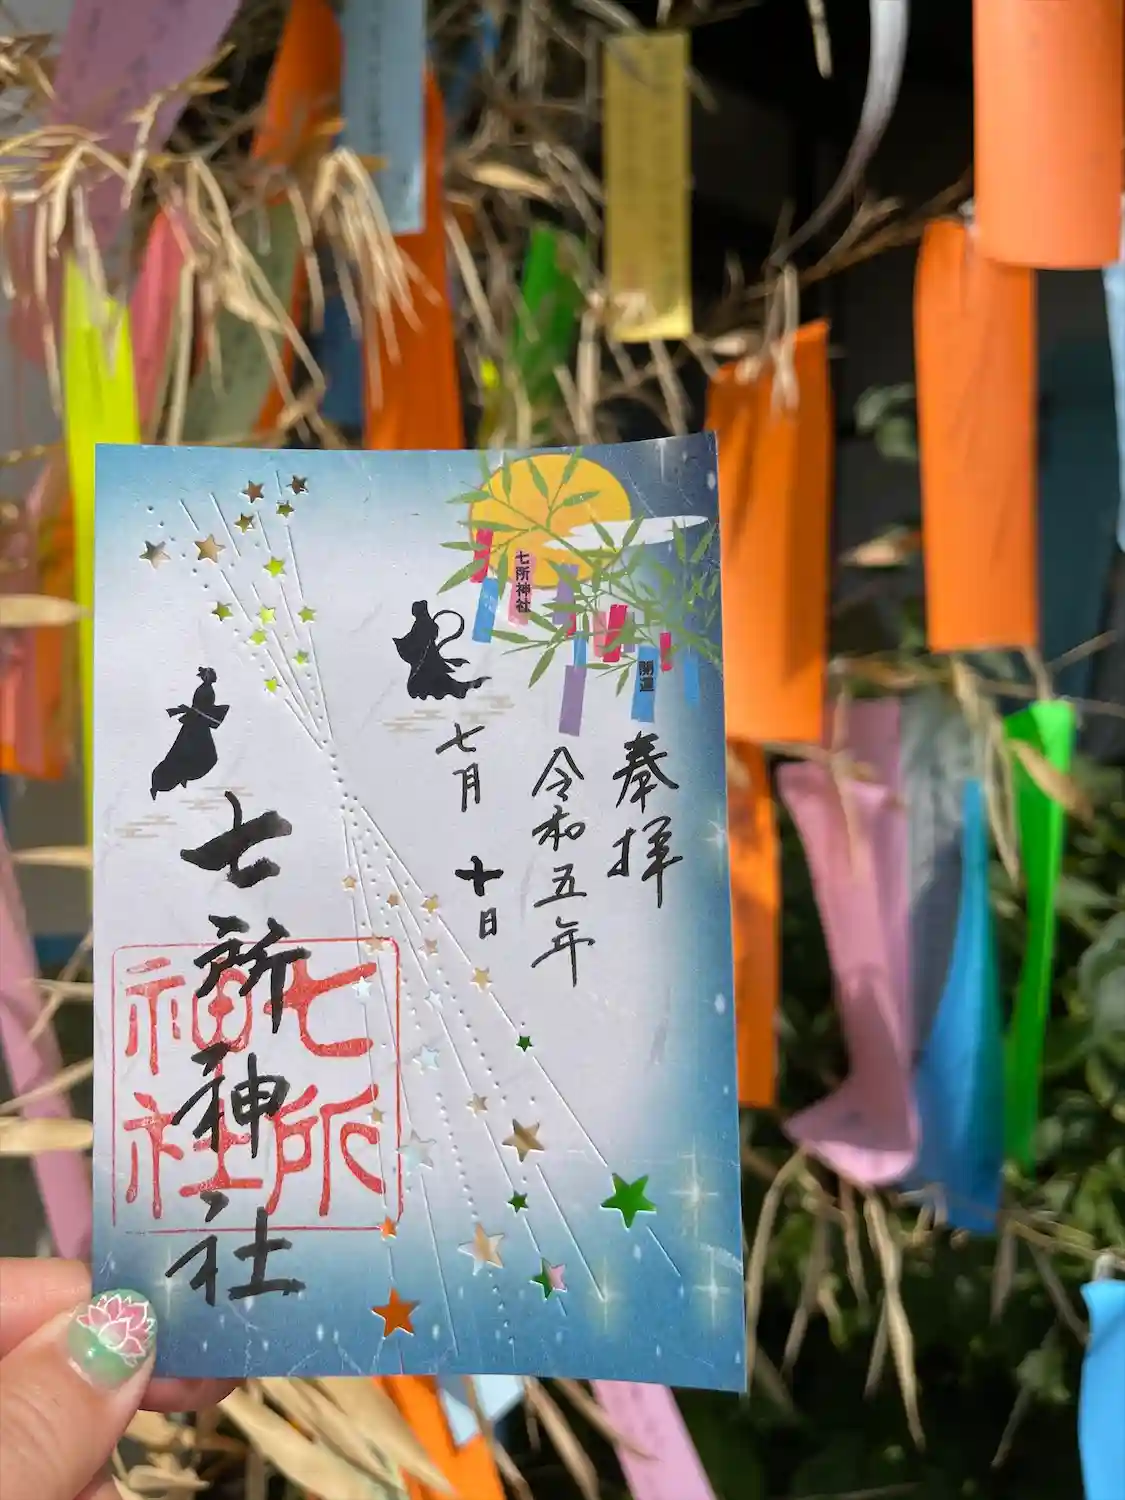 七所神社
開運
奉拝
令和五年
七月 十日
七所神社
七所
神社